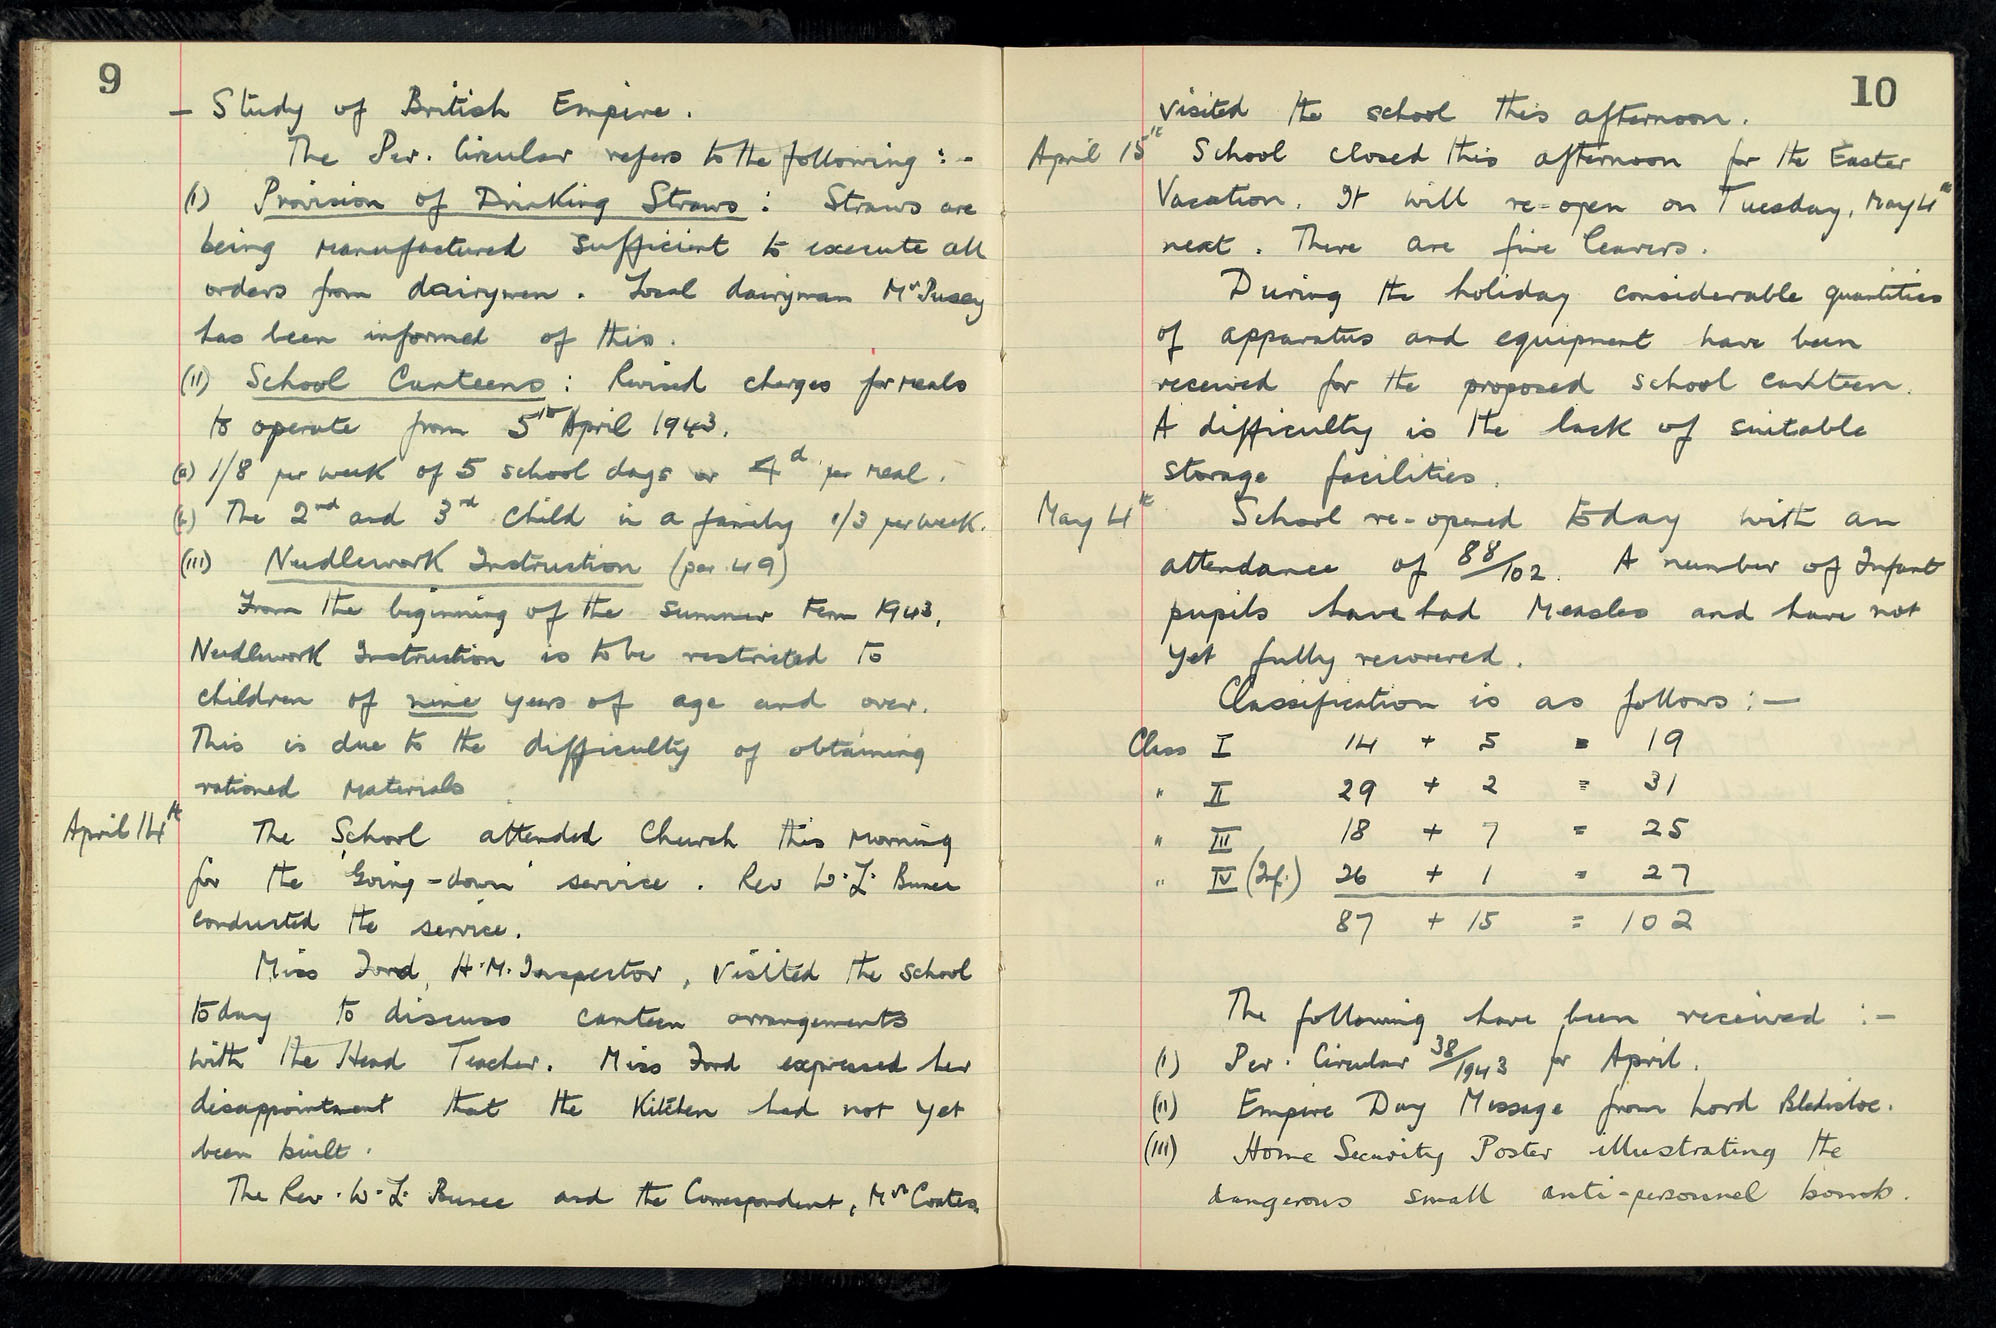 9
- Study of British Empire.
The Per. Circular refers to the following :-
(i) Provision of Drinking Straws : Straws are
being manufactured sufficient to execute all
orders from dairymen. Local dairyman Mr Pusey
has been informed of this.
(ii) School Canteens : Revised charges for meals
to operate from 5th April 1943.
(a) 1/8 per week of 5 school days or 4d per meal.
(b) The 2nd and 3rd child in a family 1/3 per week.
(iii) Needlework Instruction (par. 49)
From the beginning of the summer term 1943,
Needlework Instruction is to be restricted to
children of nine years of age and over.
This is due to the difficulty of obtaining
rationed materials
April 14th The School attended Church this morning
for the 'Going-down' service. Rev W. L.
conducted the service.
Miss Ford, H.M. Inspector, visited the school
today to discuss canteen arrangements
with the Head Teacher. Miss Ford expressed her
disappointment that the Kitchen had not yet
been built.
The Rev. W. L. and the Correspondent, Mrs Coates,
10
visited the school this afternoon.
April 15th School closed this afternoon for the Easter
Vacation. It will re-open on Tuesday, May 4th
next. There are five leavers.
During the holiday considerable quantities
of apparatus and equipment have been
received for the proposed school canteen.
A difficulty is the lack of suitable
storage facilities.
May 4th School re-opened today with an
attendance of 88/102. A number of Infant
pupils have had Measles and have not
yet fully recovered.
Classification is as follows :-
Class I 14 + 5 = 19
" II 29 + 2 = 31
" III 18 + 7 = 25
" IV (Inf.) 26 + 1 = 27
87 + 15 = 102
The following have been received :-
(i) Per. Circular 38/1943 for April.
(ii) Empire Day Message from Lord Bledisloe.
(iii) Home Security Poster illustrating the
dangerous small anti-personnel bomb.